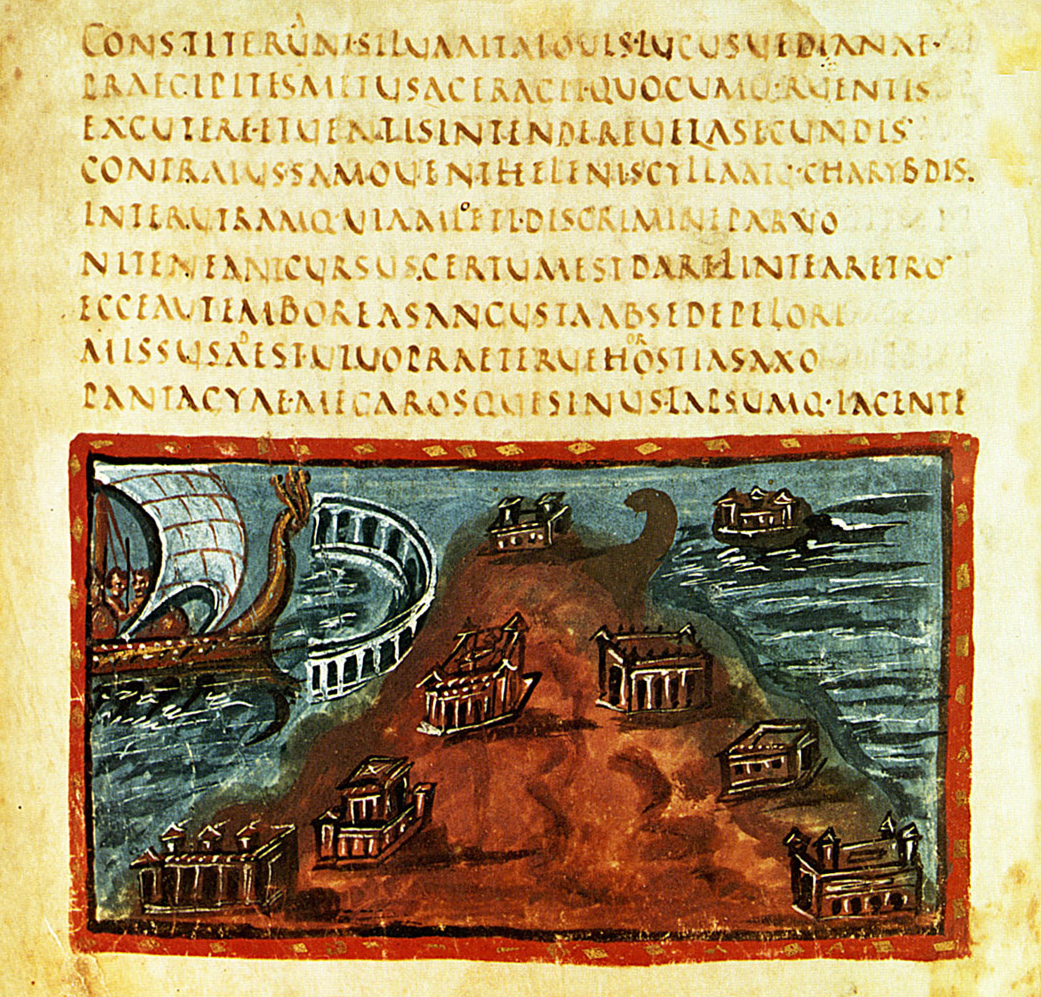 CONSTITERUNT·SILUAALTAIOUIS·LUCUSUEDIANAE·
PRAECIPITESMETUSACERAGIT·QUOCUMQ·RUENTIS
EXCUTERE·ETUENTISINTENDEREUELASECUNDIS
CONTRAIUSSAMOUENTHELENISCYLLAATQ·CHARYBDIS.
INTERUTRAMQ·UIAMLETI·DISCRIMINEPARUO
NITENEANTCURSUS.CERTUMESTDARELINTEARETRO
ECCEAUTEMBOREASANGUSTAABSEDEPELORI
MISSUSADEST·UIUOPRAETERUEHOROSTIASAXO
PANTAGYAE·MEGAROSQUESINUS·TAPSUMQ·IACENTE